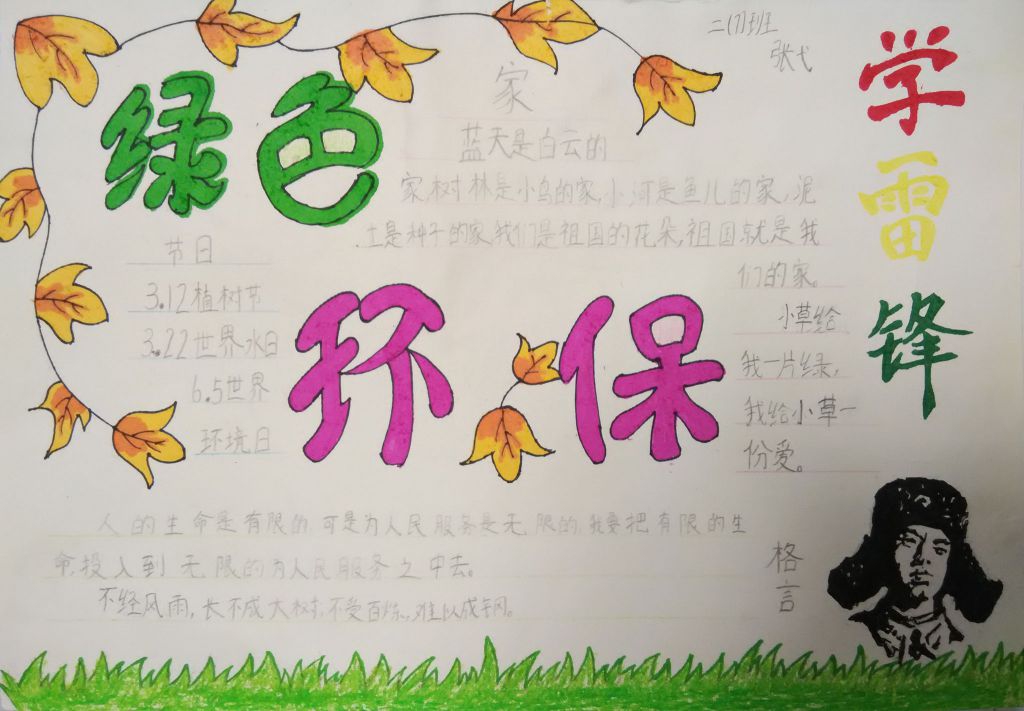 二(7)班
张弋
学雷锋
绿色
环保
家
蓝天是白云的
家,树林是小鸟的家,小河是鱼儿的家,泥
土是种子的家,我们是祖国的花朵,祖国就是我
们的家。
小草给
我一片绿,
我给小草一
份爱。
节日
3.12植树节
3.22世界水日
6.5世界
环境日
人的生命是有限的,可是为人民服务是无限的,我要把有限的生
命,投入到无限的为人民服务之中去。
不经风雨,长不成大树,不受百炼,难以成钢。
格言